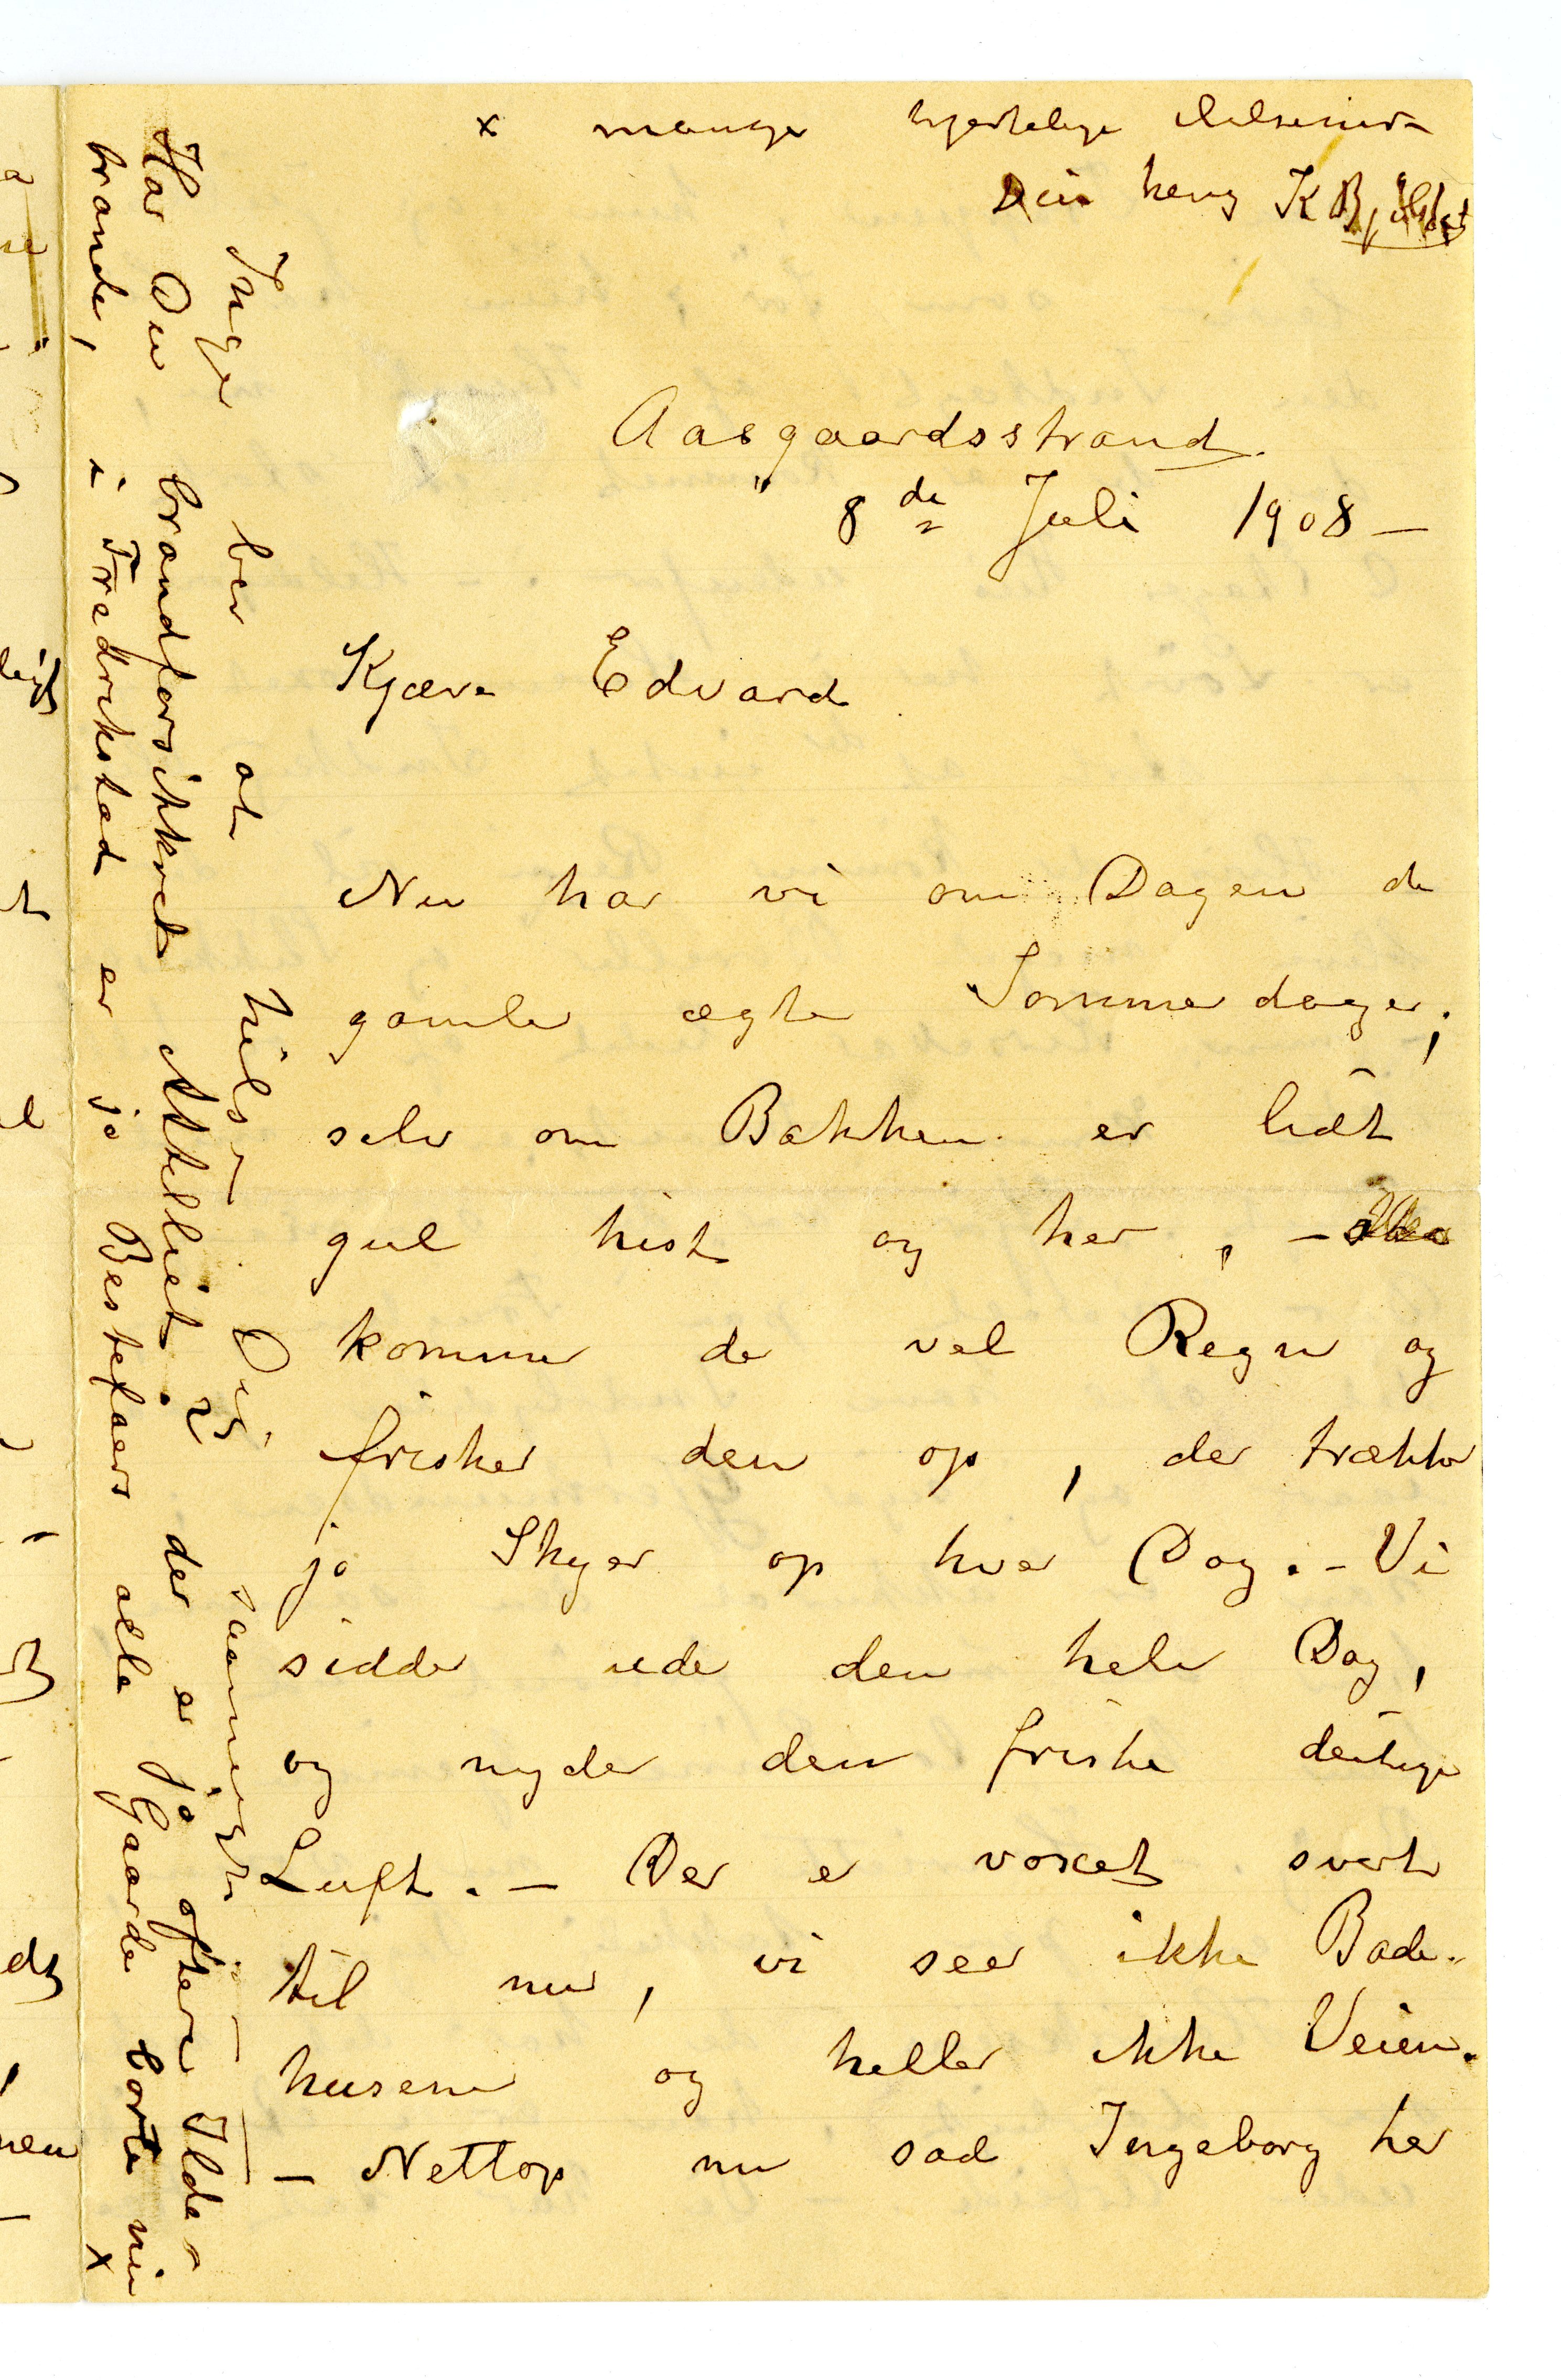 x mange hjertelige Hilsener
Din heng K Bjølstad
Aasgaardsstrand.
8de Juli 1908 –
Kjære Edvard
Nu har vi om Dagen de
gamle ægte Sommerdage;
selv om Bakken er lidt
gul hist og her, –
kommer de vel Regn og
frisker den op, der trækker
jo Skyer op hver Dag. – Vi
sidder ude den hele Dag,
og nyder den friske deilige
Luft. – Der er voxet svert
til nu, vi seer ikke Bade-
husene og heller ikke Veien.
– Nettop nu sad Ingeborg her
Inger ber at hilse Dig saamegit –
Har Du brandforsikkret Attelliet? der er jo oftere Ilde-
brande, i Fredrikstad er jo Bestefaers alle Gaarde borte nu x